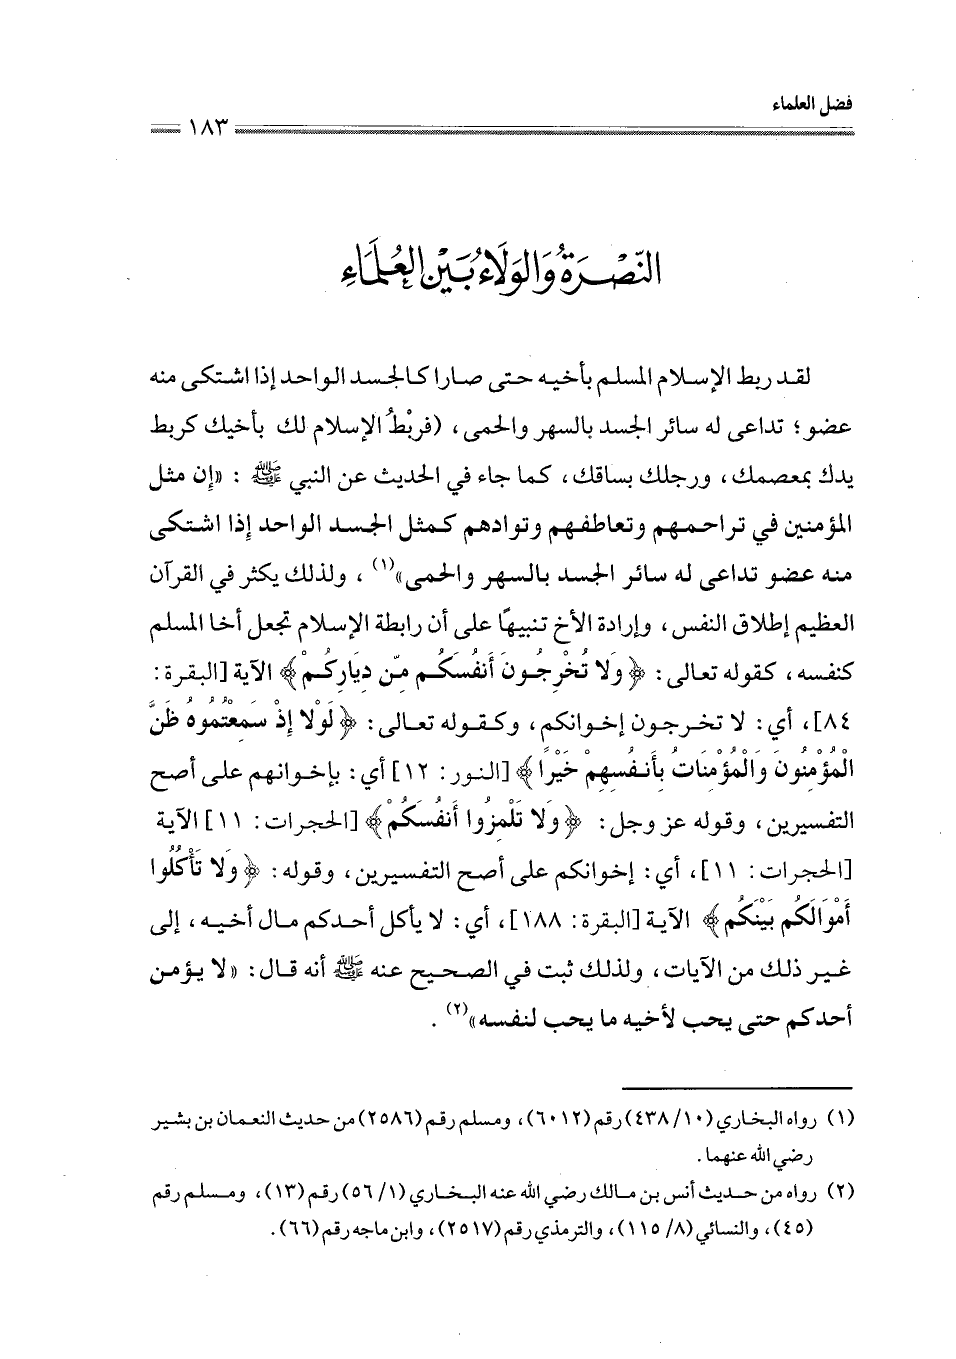 فضل العلماء
١٨٣
النُّصْرَةُ وَالوَلَاءُ بَيْنَ العُلَمَاءِ
لقد ربط الإسلام المسلم بأخيه حتى صارا كالجسد الواحد إذا اشتكى منه
عضو؛ تداعى له سائر الجسد بالسهر والحمى، (فربْطُ الإسلام لك بأخيك كربط
يدك بمعصمك، ورجلك بساقك، كما جاء في الحديث عن النبي ﷺ : «إن مثل
المؤمنين في تراحمهم وتعاطفهم وتوادهم كمثل الجسد الواحد إذا اشتكى
منه عضو تداعى له سائر الجسد بالسهر والحمى»(١) ، ولذلك يكثر في القرآن
العظيم إطلاق النفس، وإرادة الأخ تنبيهًا على أن رابطة الإسلام تجعل أخا المسلم
كنفسه، كقوله تعالى: ﴿وَلا تُخْرِجُونَ أَنفُسَكُم مِّن دِيَارِكُمْ﴾ الآية [البقرة:
٨٤]، أي: لا تخرجون إخوانكم، وكقوله تعالى: ﴿لَوْلا إِذْ سَمِعْتُمُوهُ ظَنَّ
الْمُؤْمِنُونَ وَالْمُؤْمِنَاتُ بِأَنفُسِهِمْ خَيْرًا﴾ [النور: ١٢] أي: بإخوانهم على أصح
التفسيرين، وقوله عز وجل: ﴿وَلا تَلْمِزُوا أَنفُسَكُمْ﴾ [الحجرات: ١١] الآية
[الحجرات: ١١]، أي: إخوانكم على أصح التفسيرين، وقوله: ﴿وَلا تَأْكُلُوا
أَمْوَالَكُم بَيْنَكُم﴾ الآية [البقرة: ١٨٨]، أي: لا يأكل أحدكم مال أخيه، إلى
غير ذلك من الآيات، ولذلك ثبت في الصحيح عنه ﷺ أنه قال: «لا يؤمن
أحدكم حتى يحب لأخيه ما يحب لنفسه»(٢) .
(١) رواه البخاري (١٠/ ٤٣٨) رقم (٦٠١٢)، ومسلم رقم (٢٥٨٦) من حديث النعمان بن بشير
رضي الله عنهما .
(٢) رواه من حديث أنس بن مالك رضي الله عنه البخاري (١/ ٥٦) رقم (١٣)، ومسلم رقم
(٤٥)، والنسائي (٨/ ١١٥)، والترمذي رقم (٢٥١٧)، وابن ماجه رقم (٦٦).